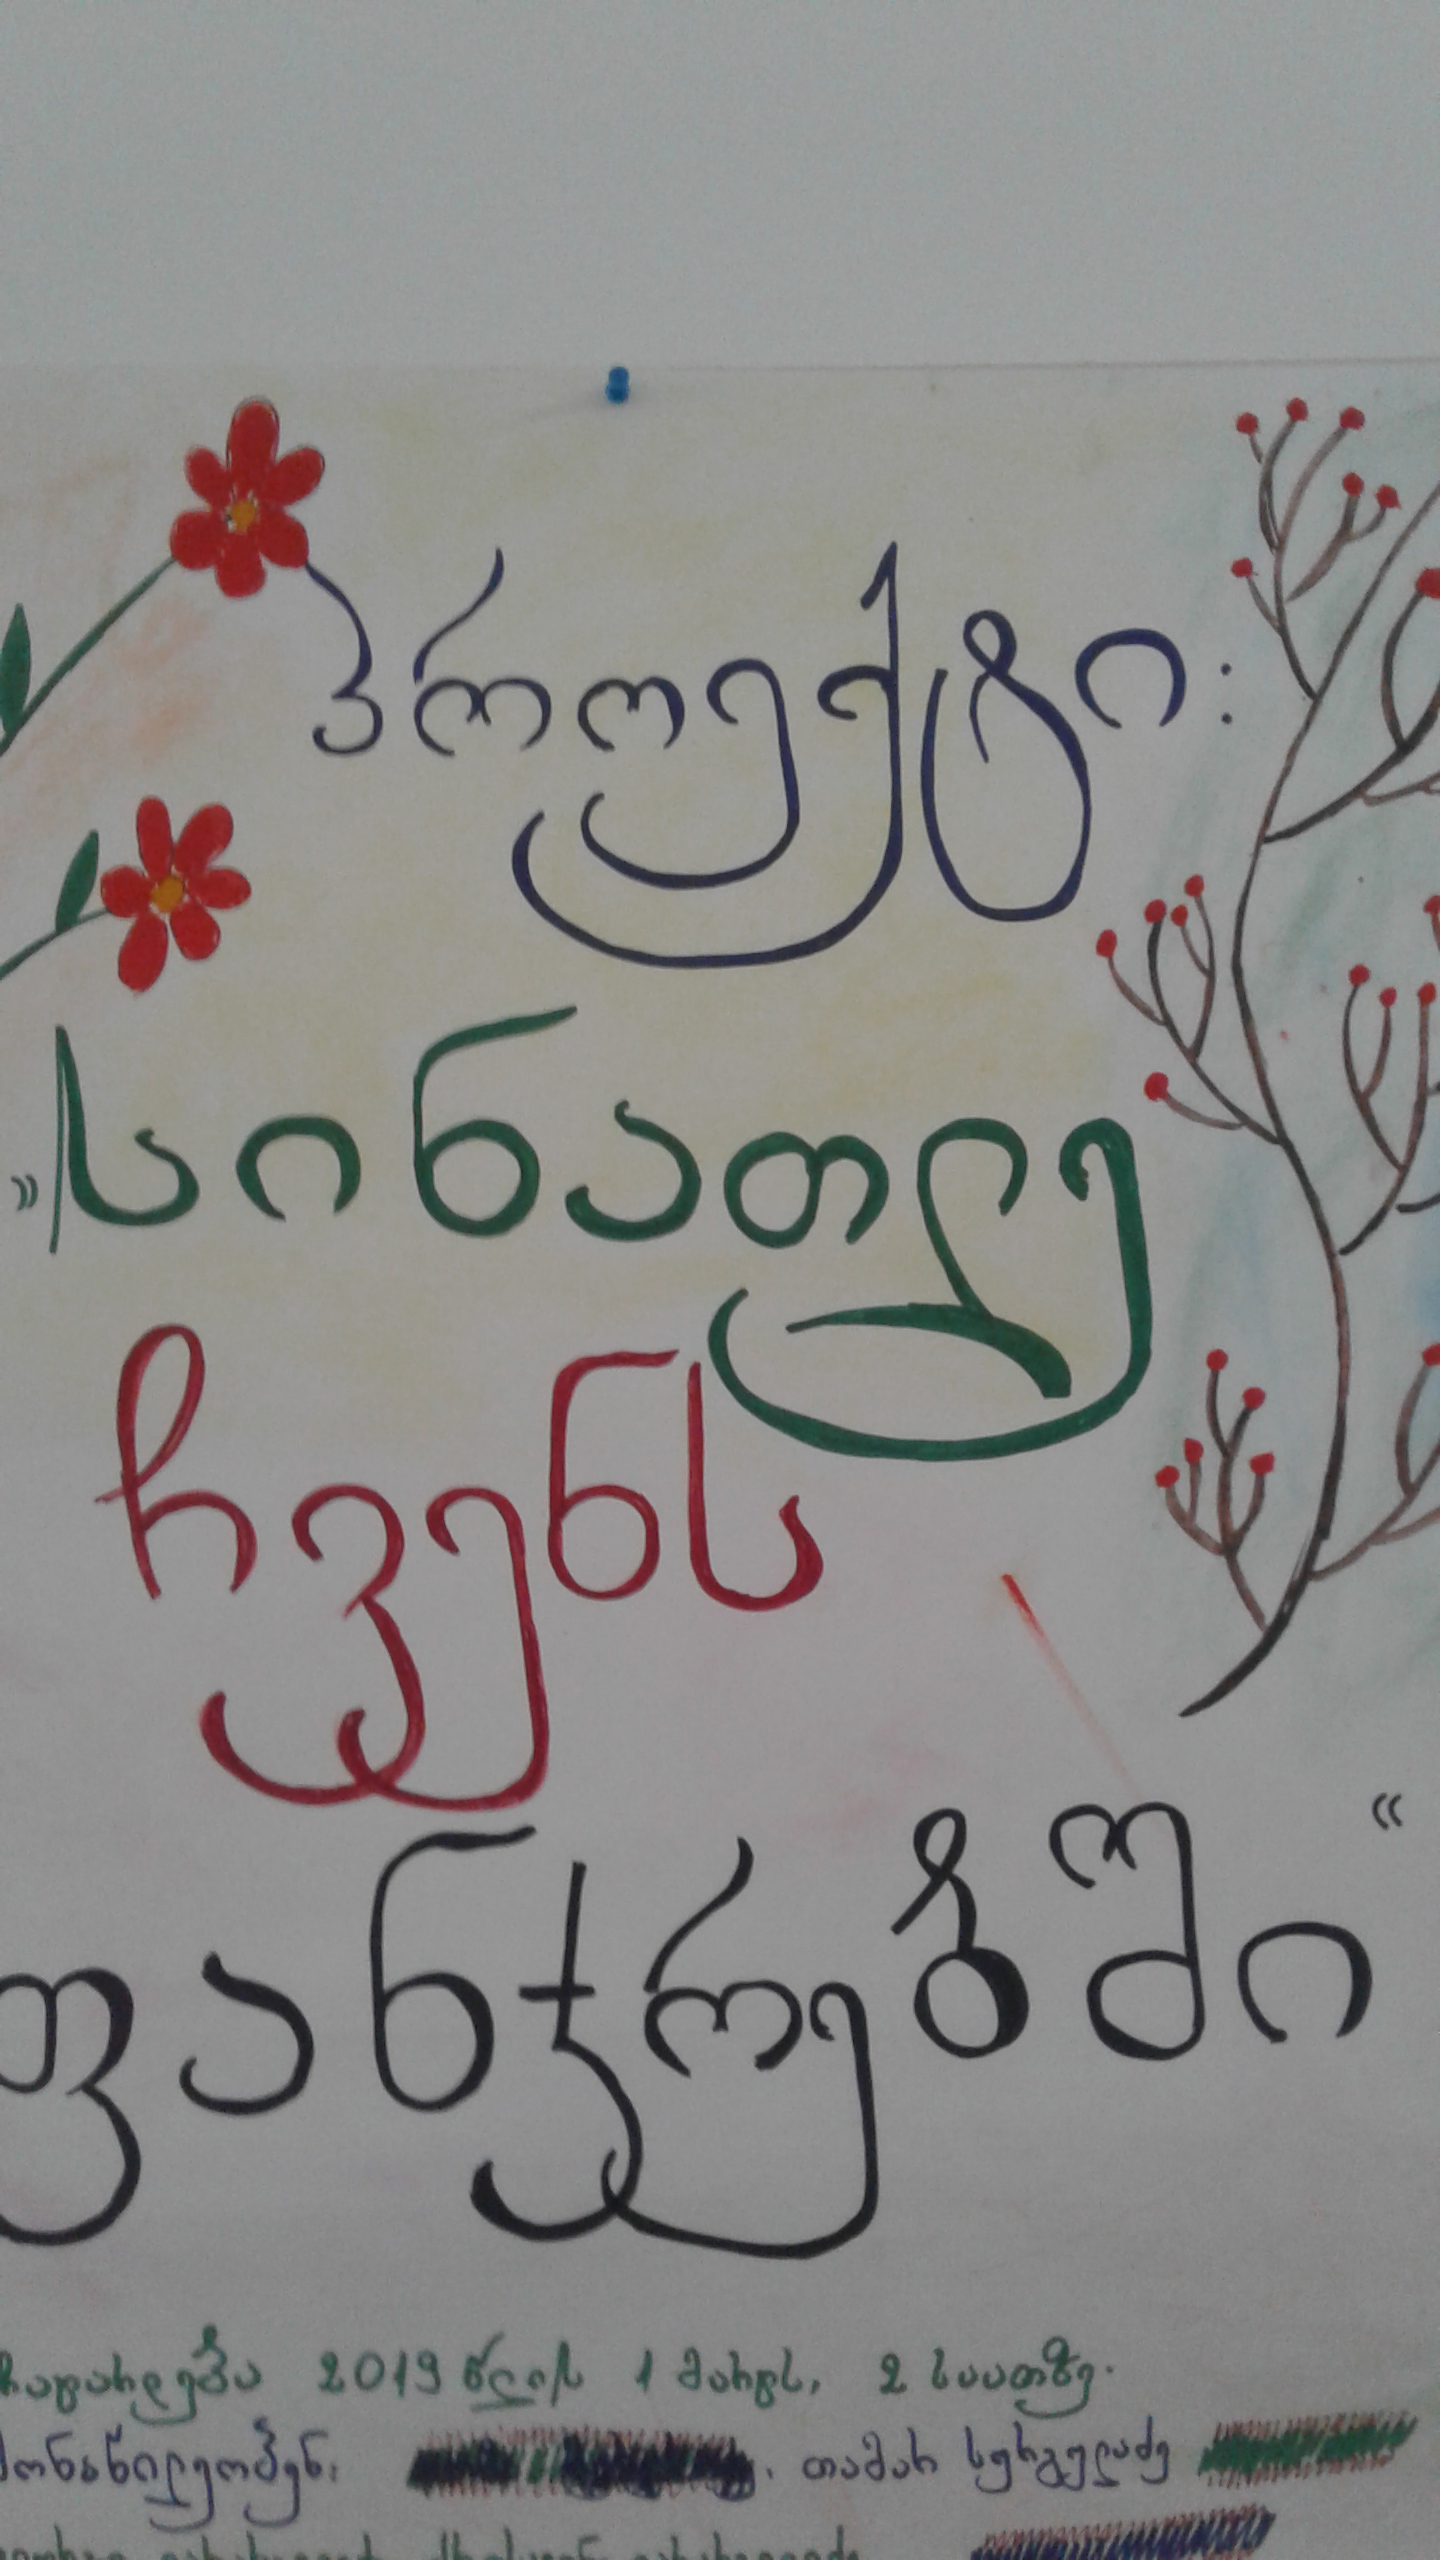 პროექტი:
„სინათლე
ჩვენს
ფანჯრებში“
ჩატარდება 2019 წლის 1 მარტს, 2 საათზე.
მონაწილეობენ: თამარ სურგულაძე